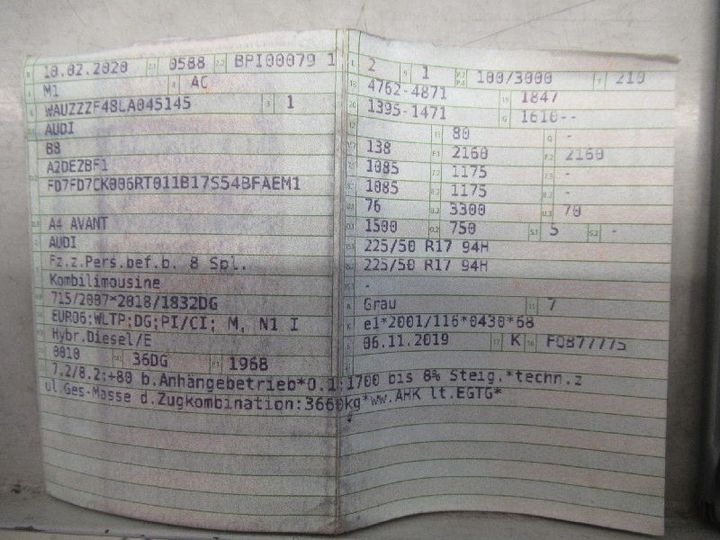 10.02.2020 0588 BPI00079 1
M1 AC
WAUZZZF48LA045145 1
AUDI
B8
A2DEZBF1
FD7FD7CK006RT011B17S54BFAEM1
A4 AVANT
AUDI
Fz.z.Pers.bef.b. 8 Spl.
Kombilimousine
715/2007*2018/1832DG
EURO6;WLTP;DG;PI/CI; M, N1 I
Hybr.Diesel/E
0010 36DG 1968
2 1 100/3000 210
4762-4871 1847
1395-1471 1610--
80 -
138 2160 2160
1085 1175 -
1085 1175 -
76 3300 70
1500 750 5 -
225/50 R17 94H
225/50 R17 94H
-
Grau 7
e1*2001/116*0430*68
06.11.2019 K F0877775
7.2/8.2:+80 b.Anhängebetrieb*O.1:1700 bis 8% Steig.*techn.z
ul.Ges-Masse d.Zugkombination:3660kg*ww.AHK lt.EGTG*